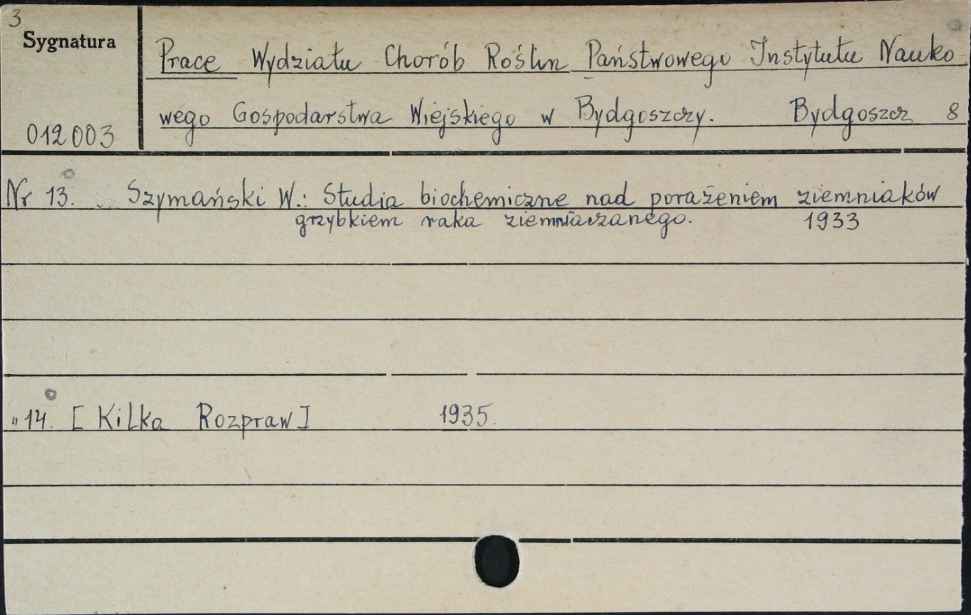 3
Sygnatura
Prace Wydziału Chorób Roślin Państwowego Instytutu Nauko
wego Gospodarstwa Wiejskiego w Bydgoszczy. Bydgoszcz 8
012003
Nr 13. Szymański W.: Studia biochemiczne nad porażeniem ziemniaków
grzybkiem raka ziemniaczanego. 1933
„ 14. [Kilka Rozpraw] 1935.